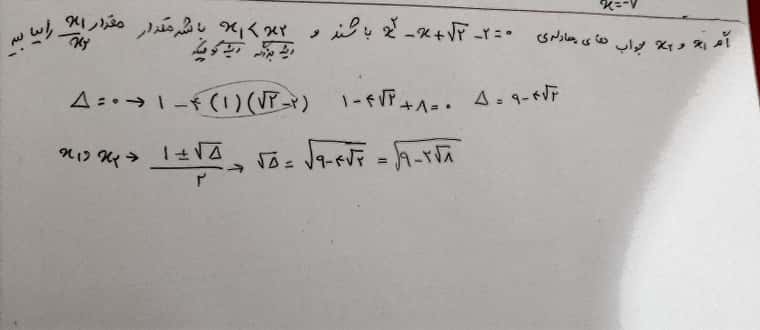 x=-7
اگر x₁ و x₂ جواب های معادله‌ی x²-x+√۲-۲=۰ باشند و x₁<x₂ باشد مقدار x₁/x₂ را بیابید
ریشه بزرگتر ریشه کوچکتر
Δ=۰→ ۱-۴(۱)(√۲-۲) ۱-۴√۲+۸=۰ Δ=۹-۴√۲
x₁,x₂→ (۱±√Δ)/۲ → √Δ=√(۹-۴√۲)=√(۹-۲√۸)